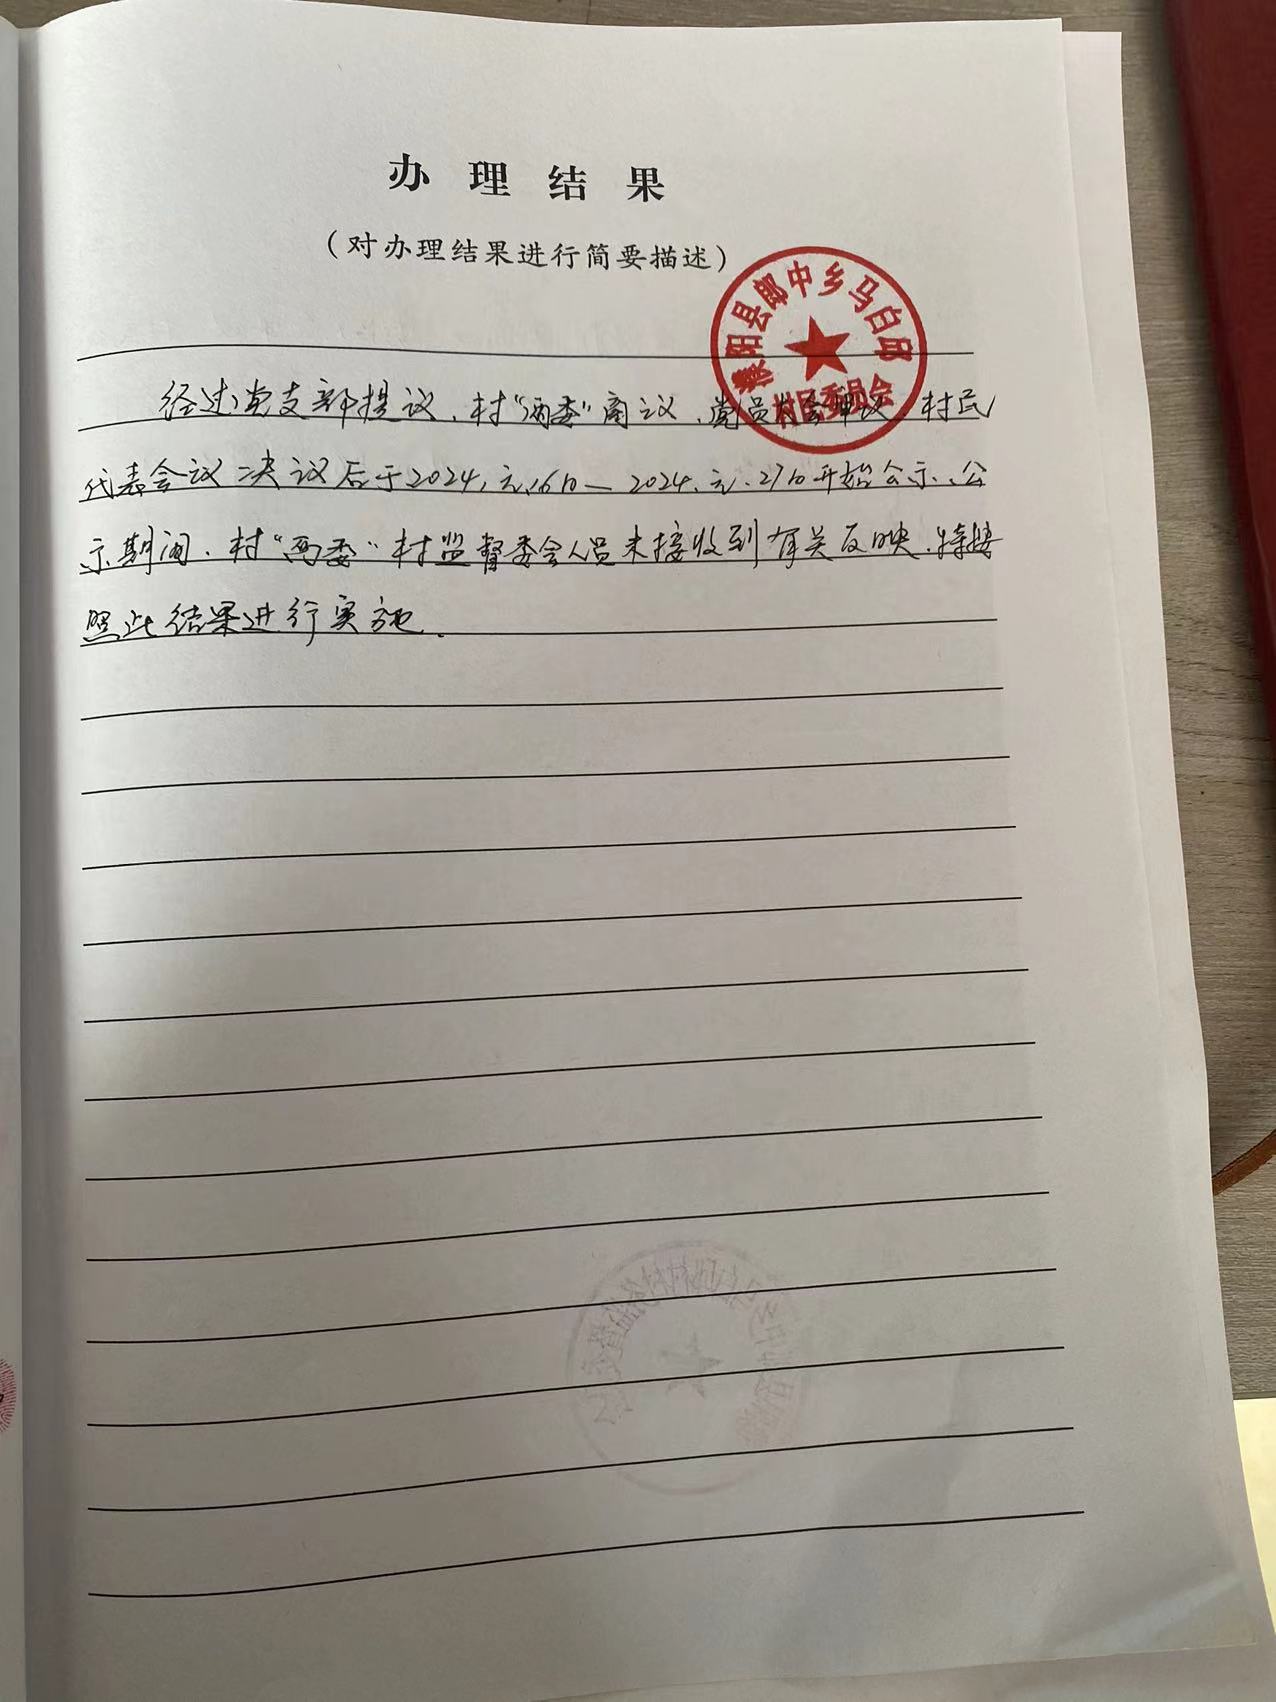 办理结果
（对办理结果进行简要描述）
濮阳县郎中乡马白邱
村民委员会
经过党支部提议、村“两委”商议、党员大会审议、村民
代表会议决议后于2024.元.16日—2024.元.27日开始公示、公
示期间、村“两委”村监督委会人员未接收到有关反映、特按
照此结果进行实施.